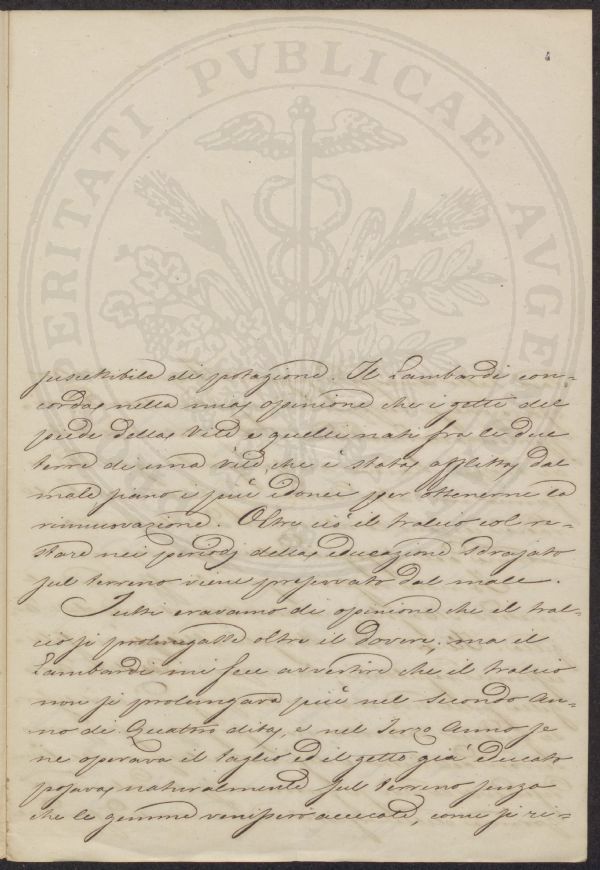 4
PROSPERITATI PVBLICAE AVGE
suscettibile di potazione. Il Lambardi con=
corda nella mia opinione che i getti del
piede della Vite e quelli nati fra le due
terre di una Vite, che è stata afflitta dal
male siano i più idonei per ottenerne la
rinnovazione. Oltre ciò il tralcio col re=
stare nei periodi della educazione sdrajato
sul terreno viene preservato dal male.
Tutti eravamo di opinione che il tral=
cio si prolungasse oltre il dovere, ma il
Lambardi mi fece avvertire che il tralcio
non si prolungava più nel secondo an=
no di Quattro dita, e nel Terzo Anno se
ne operava il taglio ed il getto già educato
posava naturalmente sul terreno senza
che le gemme venissero accecate, come si ri=